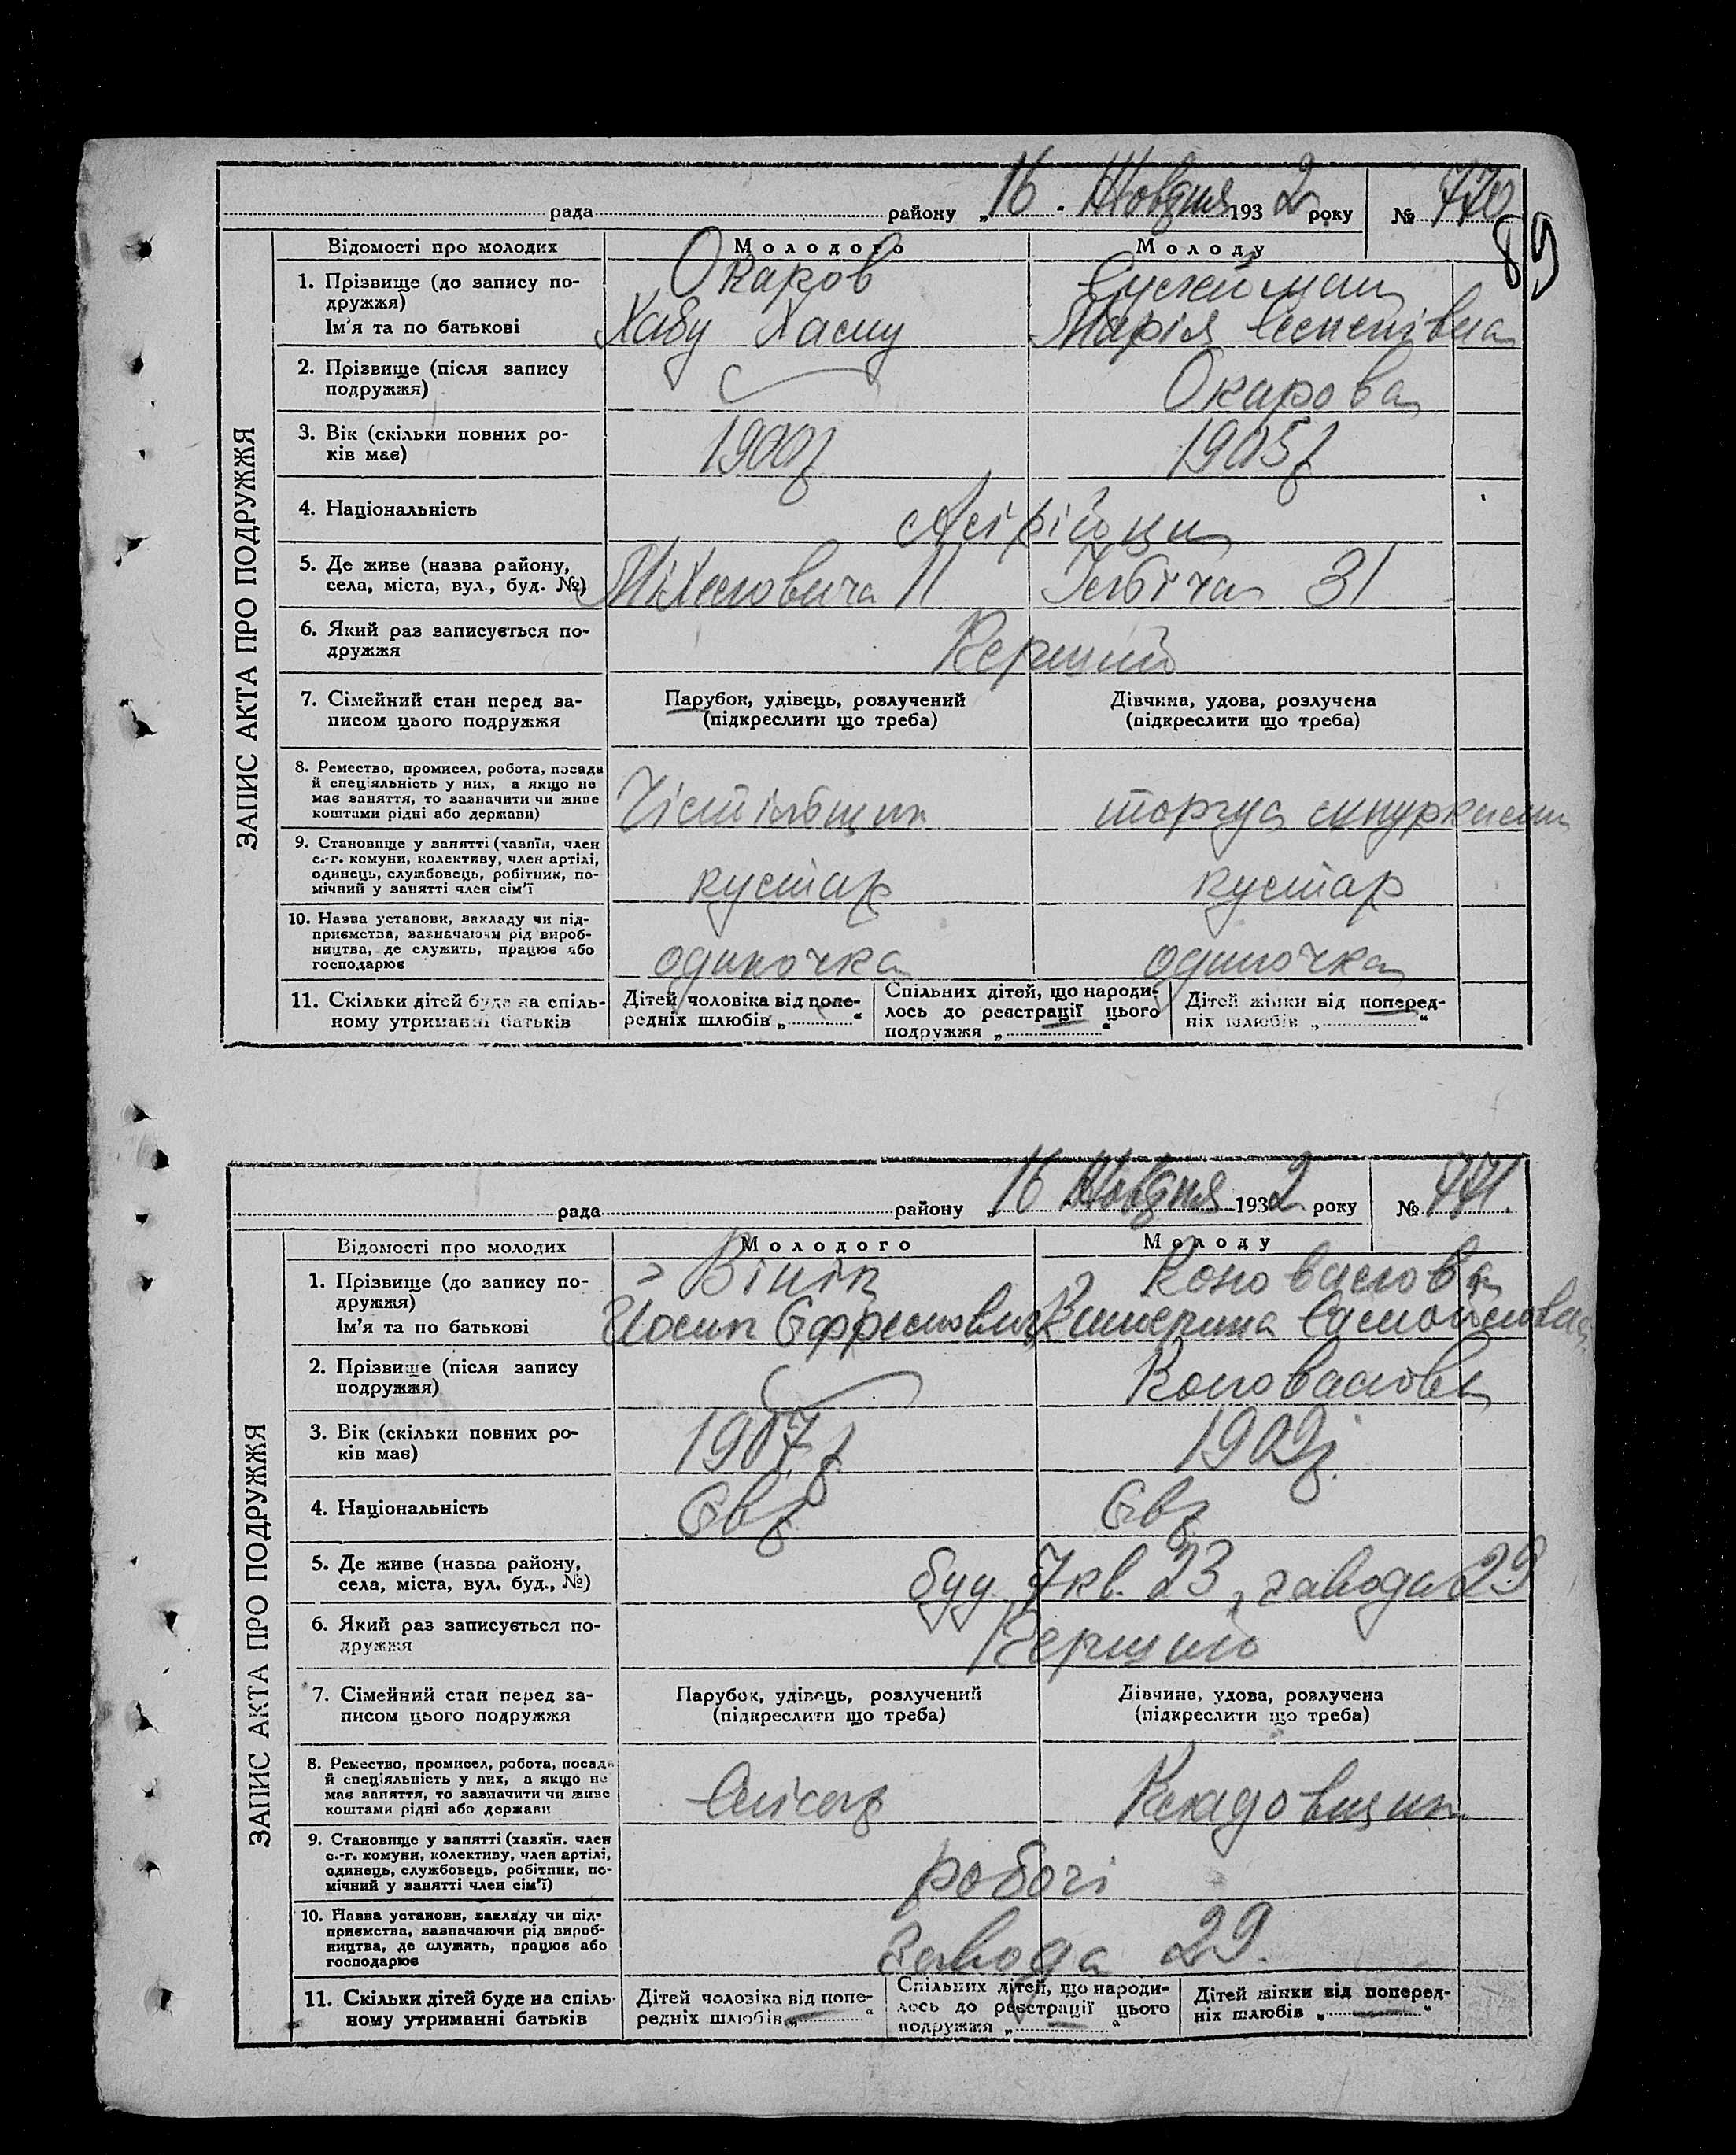 рада района „16 . Жовтня 1932 року № 770
89
ЗАПИС АКТА ПРО ПОДРУЖЖЯ
Відомості про молодих Молодого Молоду
1. Прізвище (до запису по-
дружжя) Окаров
Ім'я та по батькові Хабу Хасу Марія
2. Прізвище (після запису
подружжя) Окарова
3. Вік (скільки повних ро-
ків має) 1900р 1905р
4. Національність Асірійци
5. Де живе (назва району,
села, міста, вул., буд. №) 11 Ілліча 31
6. Який раз записується по-
дружжя Перший
7. Сімейний стан перед за-
писом цього подружжя
Парубок, удівець, розлучений
(підкреслити що треба)
Дівчина, удова, розлучена
(підкреслити що треба)
8. Ремество, промисел, робота, посада
й спеціяльність у них, а якщо не
має заняття, то зазначити чи живе
коштами рідні або держави)
Чістільщик торгує шнурками
9. Становище у занятті (хазяїн, член
с.-г. комуни, колективу, член артілі,
одинець, службовець, робітник, по-
мічний у занятті член сім'ї
кустар кустар
10. Назва установи, закладу чи під-
приємства, зазначаючи рід вироб-
ництва, де служить, працює або
господарює
одиночка одиночка
11. Скільки дітей буде на спіль-
ному утриманні батьків
Дітей чоловіка від попе-
редніх шлюбів „ “
Спільних дітей, що народи-
лось до реєстрації цього
подружжя „ “
Дітей жінки від поперед-
ніх шлюбів „ “
рада району „16 Жовтня 1932 року № 771.
ЗАПИС АКТА ПРО ПОДРУЖЖЯ
Відомості про молодих Молодого Молоду
1. Прізвище (до запису по-
дружжя) Вінік Коновалова
Ім'я та по батькові Йосип Єфремович Катерина Самойловна
2. Прізвище (після запису
подружжя) Коновалова
3. Вік (скільки повних ро-
ків має) 1907р 1909р.
4. Національність Євр Євр
5. Де живе (назва району,
села, міста, вул. буд., №) буд 7 кв. 23, завода 29
6. Який раз записується по-
дружжя Перший
7. Сімейний стан перед за-
писом цього подружжя
Парубок, удівець, розлучений
(підкреслити що треба)
Дівчина, удова, розлучена
(підкреслити що треба)
8. Ремество, промисел, робота, посада
й спеціяльність у них, а якщо не
має заняття, то зазначити чи живе
коштами рідні або держави
Слісар Кладовщик
9. Становище у занятті (хазяїн. член
с.-г. комуни, колективу, член артілі,
одинець, службовець, робітник, по-
мічний у занятті член сім'ї)
робочі
10. Назва установи, закладу чи під-
приємства, зазначаючи рід вироб-
ництва, де служить, працює або
господарює
завода 29.
11. Скільки дітей буде на спіль-
ному утриманні батьків
Дітей чоловіка від попе-
редніх шлюбів „ “
Спільних дітей, що народи-
лось до реєстрації цього
подружжя „ “
Дітей жінки від поперед-
ніх шлюбів „ “